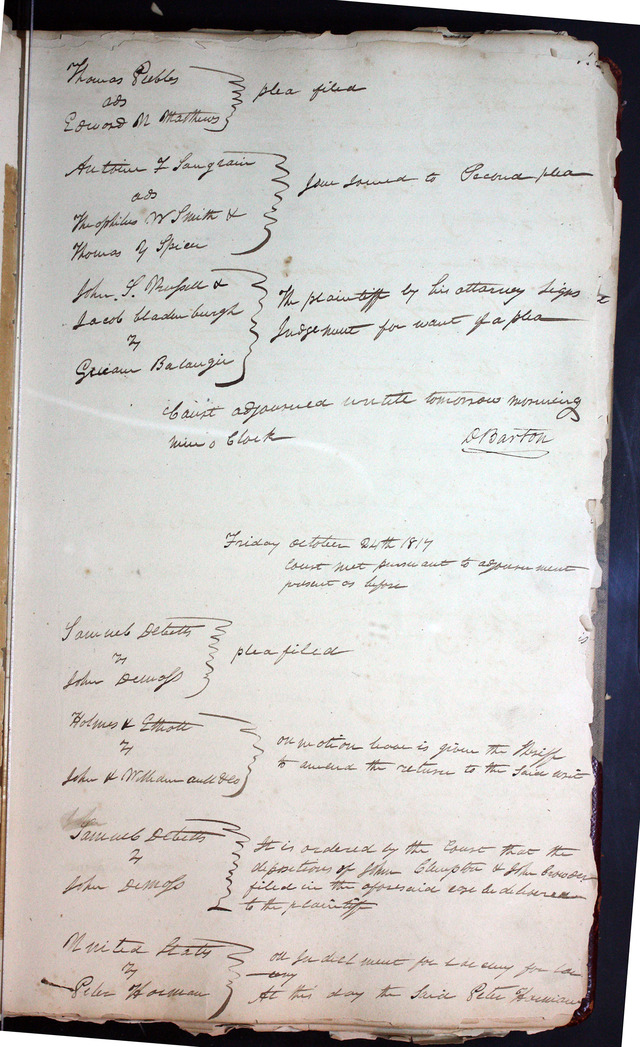 Thomas Peebles
ads
Edward N Matthews
plea filed
Antoine F Saugrain
ads
Theophilus W Smith &
Thomas Y Spicer
Issue Joined to Second plea
John S. Russell &
Jacob Cladenburgh
v
Balangir
The plaintiff by his attorney Signs
Judgement for want of a plea
Court adjourned untill tomorrow morning
nine o Clock
D Barton
Friday October 24th 1817
Court met pursuant to adjournment
present as before
Samuel Debetts
v
John Demoss
plea filed
Holmes & Elliott
v
John & William & Co
on motion leave is given the Shriff
to amend the return to the Said writ
Samuel Debetts
v
John Demoss
It is ordered by the Court that the
depositions of John Clampton & John Crowder
filed in the aforesaid case be delivered
to the plaintiff
United States
v
Peter Horman
on Indictment for Larceny for Lar
ceny
At this day the Said Peter Horman